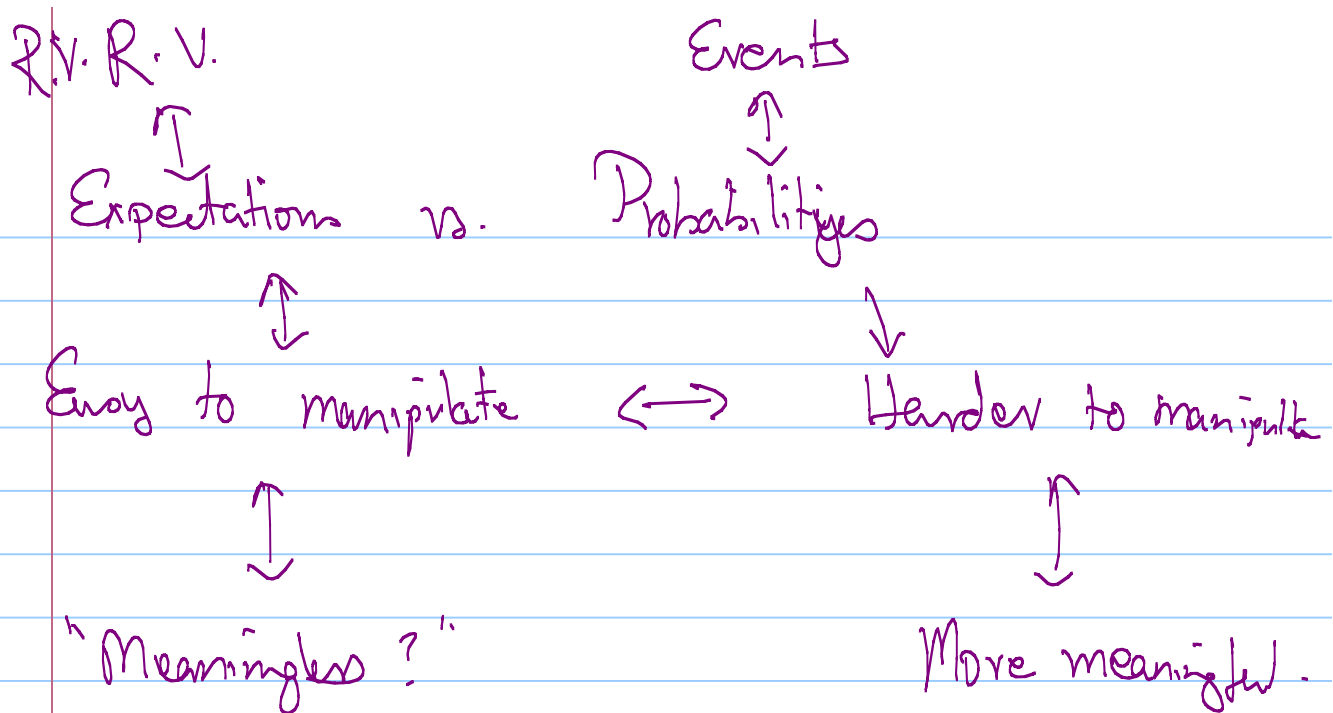 R.V. R.V. Events
Expectations vs. Probabilityes
Easy to manipulate Harder to manipulate
"Meaningless?" More meaningful.